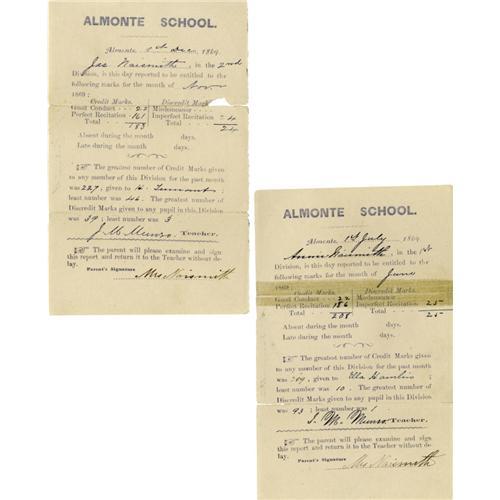 ALMONTE SCHOOL.
Almonte, 1st Dec 1869
Jas Naismith, in the 2nd
Division, is this day reported to be entitled to the
following marks for the month of Nov
1869:
Credit Marks. Discredit Mark
Good Conduct - 22 Misdemeanor -
Perfect Recitation - 161 Imperfect Recitation, 24
Total - - - 183 Total - - 24
Absent during the month days.
Late during the month days.
The greatest number of Credit Marks given
to any member of this Division for the past month
was 227, given to H.
least number was 46. The greatest number of
Discredit Marks given to any pupil in this Division
was 39; least number was 3
J. M. Munro Teacher.
The parent will please examine and sign
this report and return it to the Teacher without de-
lay.
Parent's Signature Mrs Naismith
ALMONTE SCHOOL.
Almonte, 1st July 1869
Annie Naismith, in the 1st
Division, is this day reported to be entitled to the
following marks for the month of June
1869:
Credit Marks. Discredit Marks.
Good Conduct - 22 Misdemeanor -
Perfect Recitation - 186 Imperfect Recitation - 25
Total - - - 208 Total - - - 25
Absent during the month days.
Late during the month days.
The greatest number of Credit Marks given
to any member of this Division for the past month
was 209, given to Ella Hamlin ;
least number was 10. The greatest number of
Discredit Marks given to any pupil in this Division
was 93; least number was 1
J. M. Munro Teacher.
The parent will please examine and sign
this report and return it to the Teacher without de-
lay.
Parent's Signature Mrs Naismith